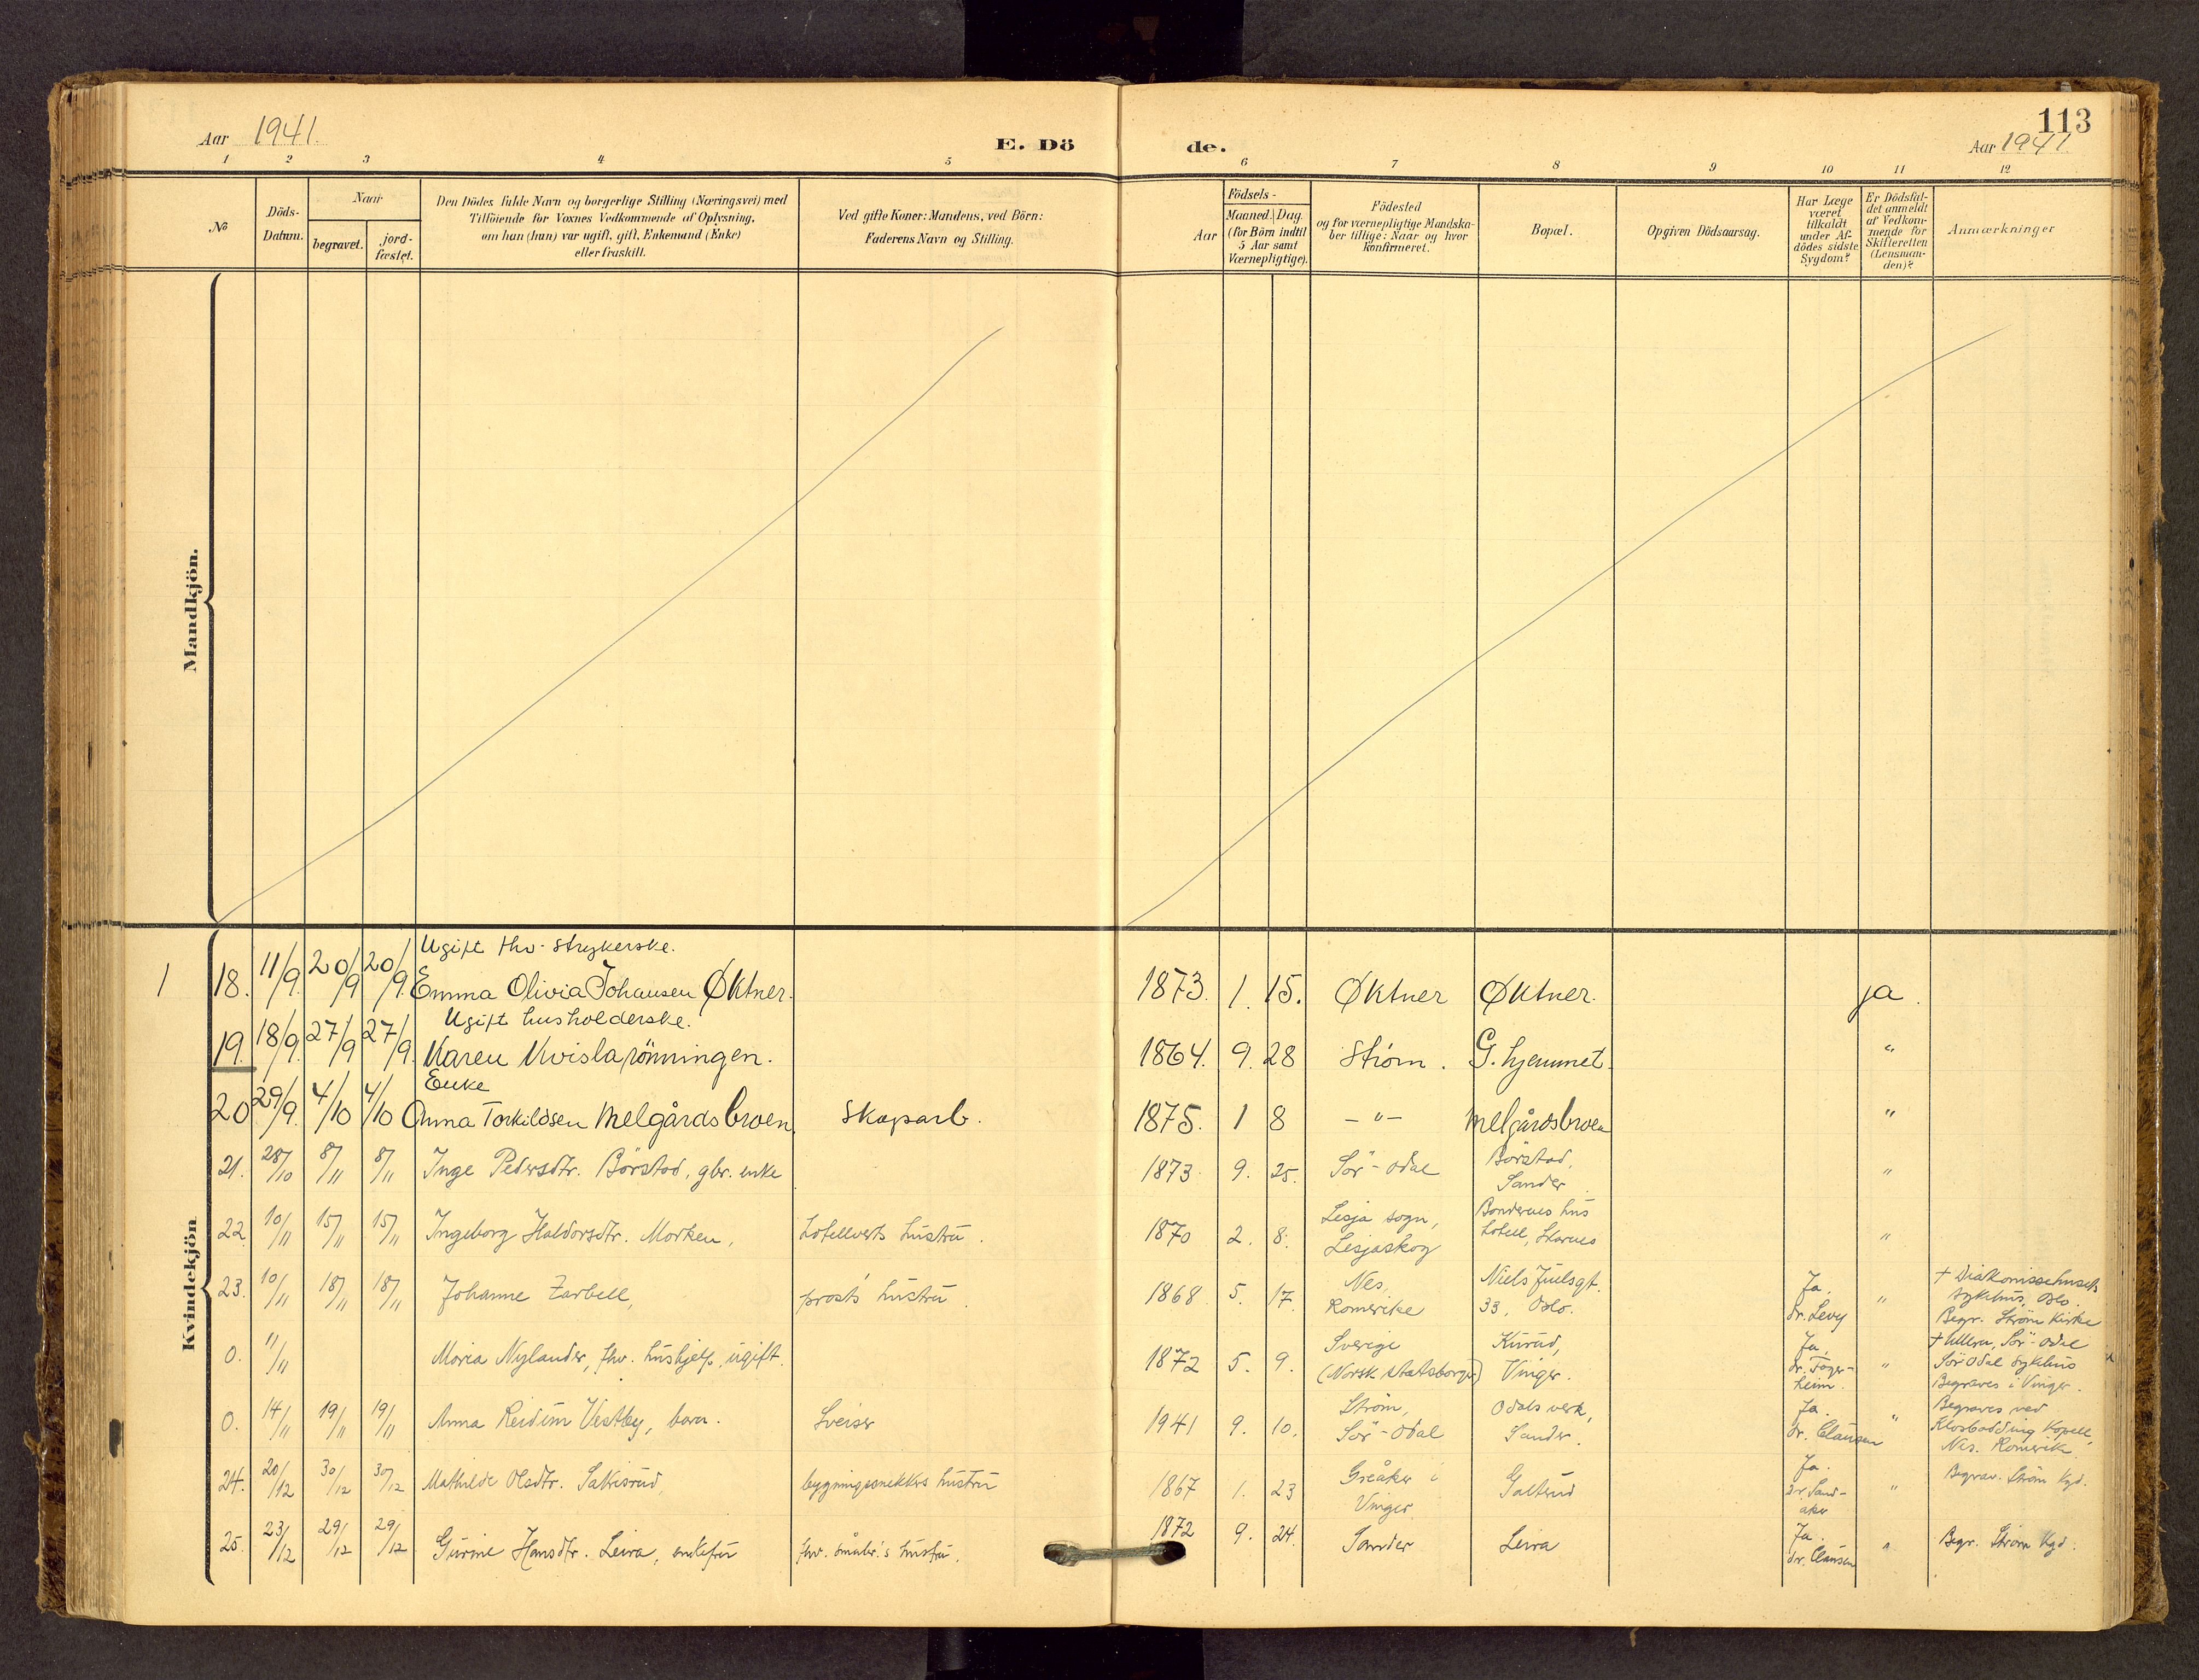 113
Aar 1941.
E. Dö
de.
Aar 1941
1 2 3 4 5 6 7 8 9 10 11 12
No
Döds-
Datum.
Naar
begravet.
jord-
fæstet.
Den Dödes fulde Navn og borgerlige Stilling (Næringsvei) med
Tilföiende for Voxnes Vedkommende af Oplysning,
om han (hun) var ugift, gift, Enkemand (Enke)
eller fraskilt.
Ved gifte Koner: Mandens, ved Börn:
Faderens Navn og Stilling.
Födsels-
Aar
Maaned. Dag.
(for Börn indtil
5 Aar samt
Værnepligtige).
Födested
og for værnepligtige Mandska-
ber tillige: Naar og hvor
konfirmeret.
Bopæl.
Opgiven Dödsaarsag.
Har Læge
været
tilkaldt
under Af-
dödes sidste
Sygdom?
Er Dödsfal-
det anmeldt
af Vedkom-
mende for
Skifteretten
(Lensman-
den)?
Anmærkninger
Mandkjön.
Kvindekjön
Ugift fhv. strykerske.
1 18. 11/9. 20/9 20/9. Emma Olivia Johansen Øktner. 1873. 1. 15. Øktner Øktner. ja.
Ugift husholderske.
19. 18/9. 27/9 27/9. Karen Kvislarönningen. 1864. 9. 28 Strøm. G. hjemmet. "
Enke
20 29/9. 4/10 4/10 Anna Torkildsen Melgårdsbroen. Skogarb. 1875. 1 8 - " - Melgårdsbroen "
21. 28/10 8/11 8/11 Inge Pedersdtr. Börstad, gbr. enke 1873. 9. 25. Sör-Odal Börstad,
Sander "
22 10/11 15/11 15/11 Ingeborg Haldorsdtr. Morken, hotellverts hustru. 1870 2. 8. Lesja sogn,
Lesjaskog Böndernes hus
hotell, Skarnes "
23. 10/11 18/11 18/11 Johanne Zarbell, prosts hustru. 1868 5. 17. Nes,
Romerike Niels Juelsgt.
33, Oslo. Ja.
dr. Levy " † Diakonissehusets
sykehus, Oslo.
Begr. Ström kirke
0. 11/11 Maria Nylander, fhv. hushjelp, ugift. 1872 5. 9. Sverige
(Norsk statsborger) Kurud,
Vinger. Ja,
dr. Fager-
heim. " † Ullern, Sör-Odal
Sör Odal sykehus
Begraves i Vinger.
0. 14/11 19/11 19/11 Anna Reidun Vestby, barn. Sveiser 1941 9. 10. Ström,
Sör-Odal Odals verk,
Sander. Ja.
dr. Clausen " Begraves ved
kapell,
Nes. Romerik.
24. 20/12 30/12 30/12 Mathilde Olsdtr. Sakrisrud, bygningssnekkers hustru 1867 1. 23 Greåker i
Vinger Galterud Ja.
dr. Sand-
aker " Begrav. Ström kgd.
25. 23/12 29/12 29/12 Gurine Hansdtr. Leira, enkefru fhv. småbr.'s hustru. 1872 9. 24. Sander Leira Ja.
dr. Clausen " Begr. Ström kgd.